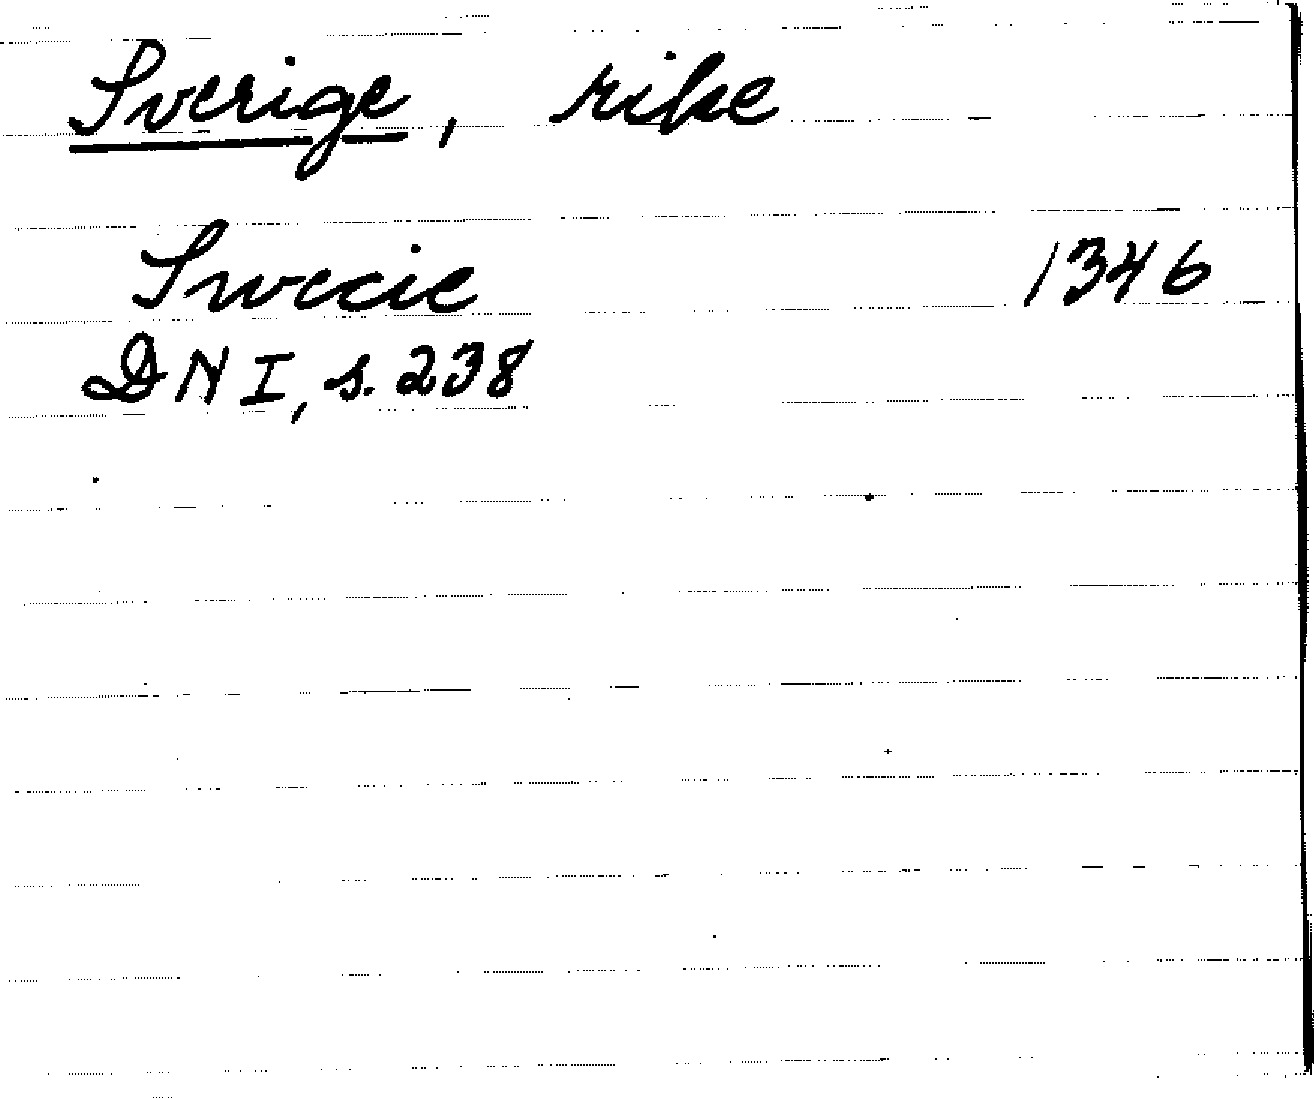 Sverige, rike
Swecie 1346
DN I, s. 238